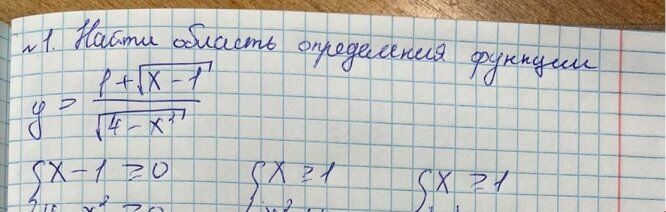 №1. Найти область определения функции
y = (1 + √(x - 1)) / √(4 - x²)
{ x - 1 ≥ 0   { x ≥ 1   { x ≥ 1